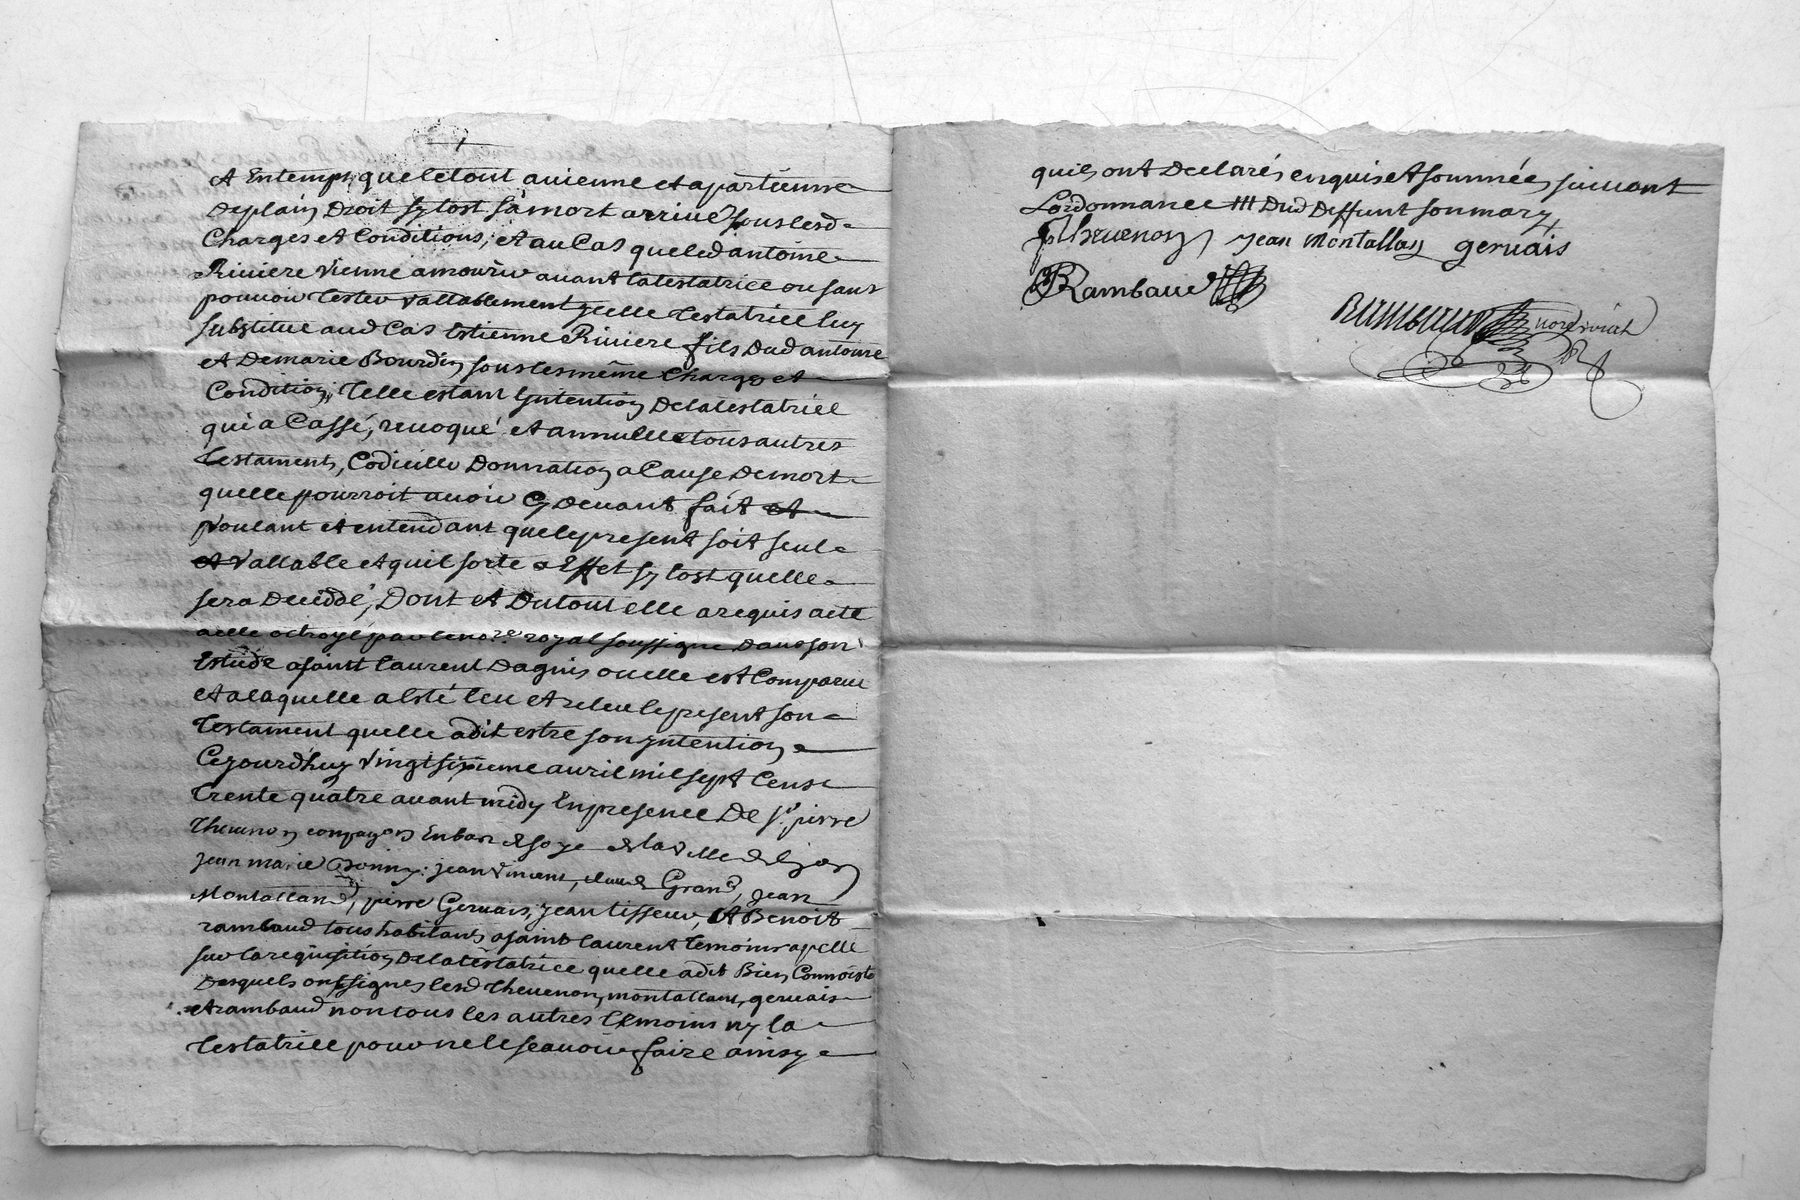 et entemps que le tout avienne et apartienne
de plain droit sy tost sa mort arrivé sous lesd
Charges et Conditions, et au Cas que led antoine
Riviere vienne a mourir avant la testatrice ou sans
pouvoir tester vallablement ycelle testatrice luy
substitue aud Cas Estienne Riviere fils dud antoine
et de marie Bourdin sous les même Charges et
Condition, telle estant Lyntention de la testatrice
qui a Cassé, revoqué et annulle tous autres
testaments, Codicille donnation a Cause de mort
quelle pourroit avoir Cy devant fait et
voulant et entendant que le present soit seul
et vallable et quil sorte Effet sy tost quelle
sera deceddé, Dont et du tout elle a requis acte
a elle octroyé par le no.re royal soussigne dans son
Estude a saint laurent dagnis ou elle est Comparue
et a laquelle a Esté leu et releu le present son
testament quelle a dit estre son yntention
Cejourdhuy vingt sixieme avril mil sept Cens
trente quatre avant midy En presence De Sr. pierre
Thevenon compagon En bas de soye de la ville de lyon
jean marie Bonin, jean vincent, claude Grand, jean
Montalland, pierre Gervais, jean tisseur, et Benoit
rambaud tous habitants a saint laurent temoins apellé
sur la requisition de la testatrice quelle a dit Bien Connoistre
desquels ont signes lesd thevenon, montalland, gervais
et rambaud non tous les autres temoins ny la
testatrice pour ne le scavoir faire ainsy
quils ont declarés enquis et sommés suivant
Lordonnance /// dud deffunt son mary
p thevenon jean montallan gervais
B Rambaud
Rambaud nore royal